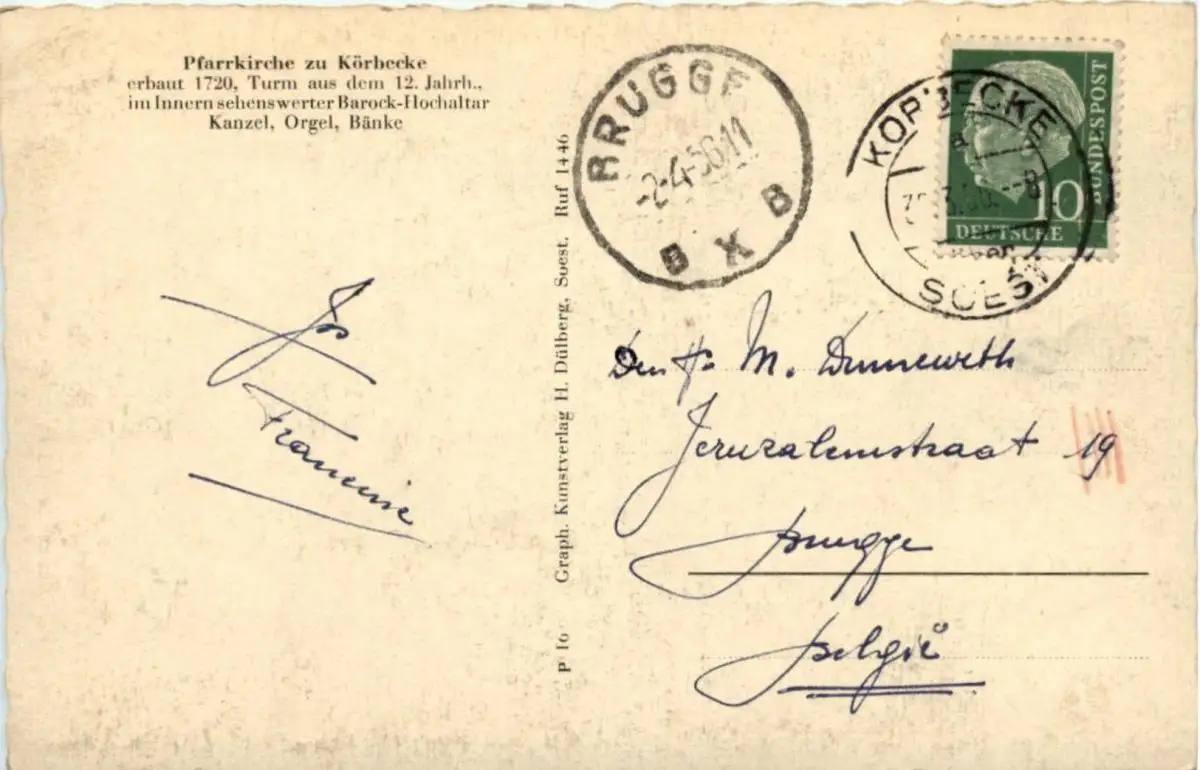 Pfarrkirche zu Körbecke
erbaut 1720, Turm aus dem 12. Jahrh.,
im Innern sehenswerter Barock-Hochaltar
Kanzel, Orgel, Bänke
Jos
Francine
P 16 Graph. Kunstverlag H. Dülberg, Soest. Ruf 1446
BRUGGE
-2-4-56.11
B X B
KÖRBECKE
a
SOEST
BUNDESPOST
10
DEUTSCHE
Den Hr M. Dunneweth
Jeruzalemstraat 19
Brugge
België